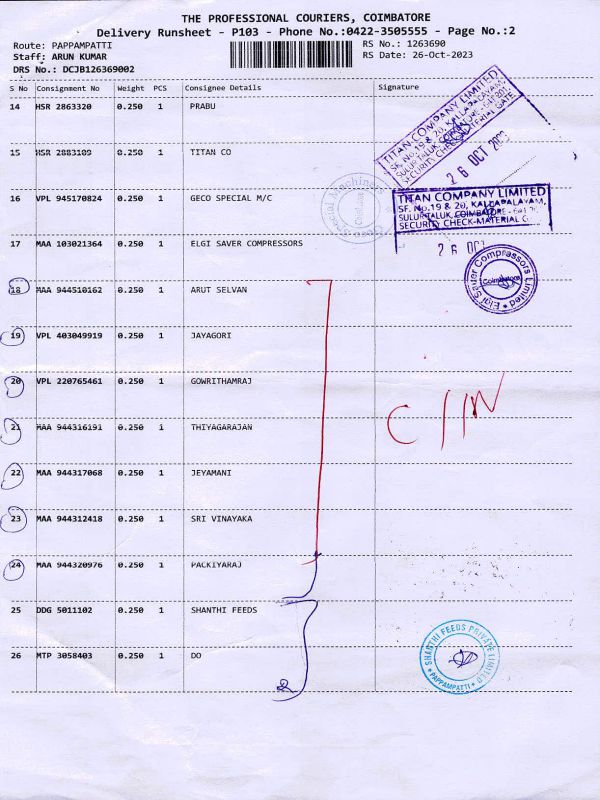 THE PROFESSIONAL COURIERS, COIMBATORE
Delivery Runsheet - P103 - Phone No.:0422-3505555 - Page No.:2
Route: PAPPAMPATTI
Staff: ARUN KUMAR
DRS No.: DCJB126369002
RS No.: 1263690
RS Date: 26-Oct-2023
S No Consignment No Weight PCS Consignee Details Signature
14 HSR 2863320 0.250 1 PRABU
15 HSR 2883109 0.250 1 TITAN CO
16 VPL 945170824 0.250 1 GECO SPECIAL M/C
17 MAA 103021364 0.250 1 ELGI SAVER COMPRESSORS
18 MAA 944510162 0.250 1 ARUT SELVAN
19 VPL 403049919 0.250 1 JAYAGORI
20 VPL 220765461 0.250 1 GOWRITHAMRAJ
21 MAA 944316191 0.250 1 THIYAGARAJAN
22 MAA 944317068 0.250 1 JEYAMANI
23 MAA 944312418 0.250 1 SRI VINAYAKA
24 MAA 944320976 0.250 1 PACKIYARAJ
25 DDG 5011102 0.250 1 SHANTHI FEEDS
26 MTP 3058403 0.250 1 DO
TITAN COMPANY LIMITED
SF. No.19 & 20, KALLAPALAYAM,
SULUR TALUK, COIMBATORE
SECURITY CHECK-MATERIAL GATE
26 OCT
TITAN COMPANY LIMITED
SF. No.19 & 20, KALLAPALAYAM,
SULUR TALUK, COIMBATORE
SECURITY CHECK-MATERIAL
26 OCT
Special Machines
Elgi Sauer Compressors Limited
Coimbatore
SHANTHI FEEDS PRIVATE LIMITED
PAPPAMPATTI